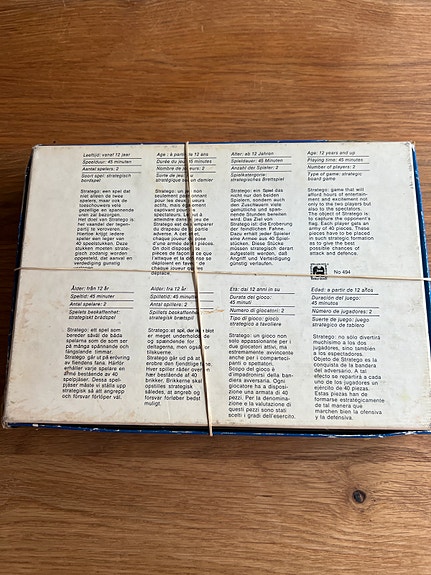 Leeftijd: vanaf 12 jaar
Speelduur: 45 minuten
Aantal spelers: 2
Soort spel: strategisch
bordspel
Stratego: een spel dat
niet alleen de twee
spelers, maar ook de
toeschouwers vele
gezellige en spannende
uren zal bezorgen.
Het doel van Stratego is:
het vaandel der tegen-
partij te veroveren.
Hierbij krijgt iedere
speler een leger van
40 speelstukken. Deze
stukken moeten strate-
gisch zodanig worden
opgesteld, dat aanval en
verdediging gunstig
Age: à partir de 12 ans
Durée du jeu: 45 minutes
Nombre de joueurs: 2
Sorte de jeu:
stratégique sur un damier
Stratego: un jeu non
seulement passionnant
pour les deux joueurs
actifs, mais également
captivant pour les
spectateurs. Le but à
atteindre dans le jeu de
Stratego est de s'emparer
du drapeau de la partie
adverse. A cet effet,
chaque joueur dispose
d'une armée de 40 pièces.
On doit disposer les
pièces de façon à ce que
l'attaque et la défense se
déploient en faveur de
chaque joueur sous les
drapeaux
Alter: ab 12 Jahren
Spieldauer: 45 Minuten
Anzahl der Spieler: 2
Spielkategorie:
strategisches Brettspiel
Stratego: ein Spiel das
nicht nur den beiden
Spielern, sondern auch
den Zuschauern viele
gemütliche und span-
nende Stunden bereiten
wird. Das Ziel von
Stratego ist: die Eroberung
der feindlichen Fahne.
Dazu erhält jeder Spieler
eine Armee aus 40 Spiel-
stücken. Diese Stücke
müssen strategisch derart
aufgestellt werden, daß
Angriff und Verteidigung
günstig verlaufen.
Age: 12 years and up
Playing time: 45 minutes
Number of players: 2
Type of game: strategic
board game
Stratego: game that will
afford hours of entertain-
ment and excitement not
only to the two players but
also to the spectators.
The object of Stratego is:
to capture the opponent's
flag. Each player gets an
army of 40 pieces. These
pieces have to be placed
in such strategic formation
as to give the best
possible chances of
attack and defence.
No 494
Ålder: från 12 år
Speltid: 45 minuter
Antal spelare: 2
Spelets beskaffenhet:
strategiskt brädspel
Stratego: ett spel som
bereder såväl de båda
spelarna som de som ser
på många spännande och
fängslande timmar.
Stratego går ut på erövring
av fiendens fana. Härför
erhåller varje spelare en
armé bestående av 40
spelpjäser. Dessa spel-
pjäser måste vi ställa upp
strategiskt så att angrepp
och försvar förlöper väl.
Alder: fra 12 år
Spilletid: 45 minutter
Antal spillere: 2
Spillets beskaffenhet:
strategisk brætspil
Stratego: et spil, der ikke blot
er meget underholdende
og spændende for
deltagerne, men også for
tilskuerne.
Stratego går ud på at
erobre den fjendtlige fane.
Hver spiller råder over en
hær bestående af 40
brikker. Brikkerne skal
opstilles strategisk
således, at angreb og
forsvar forløber bedst
muligt.
Età: dai 12 anni in su
Durata del gioco:
45 minuti
Numero di giocatori: 2
Tipo di gioco: gioco
strategico a tavoliere
Stratego: un gioco non
solo appassionante per i
due giocatori attivi, ma
estremamente avvincente
anche per i compartecí-
panti o spettatori.
Scopo del gioco è
d'impadronirsi della ban-
diera avversaria. Ogni
giocatore ha a disposi-
zione una armata di 40
pezzi. Per la denomina-
zione e la valutazione di
questi pezzi sono stati
scelti i gradi dell'esercito.
Edad: a partir de 12 años
Duración del juego:
45 minutos
Número de jugadores: 2
Suerte de juego: juego
strategico de tablero
Stratego: no sólo divertirá
muchísimo a los dos
jugadores, sino también
a los espectadores.
Objeto de Stratego es la
conquista de la bandera
del adversario. A tal
efecto se repartirá a cada
uno de los jugadores un
ejército de 40 piezas.
Estas piezas han de
formarse estratégicamente
de tal manera que
marchen bien la ofensiva
y la defensiva.